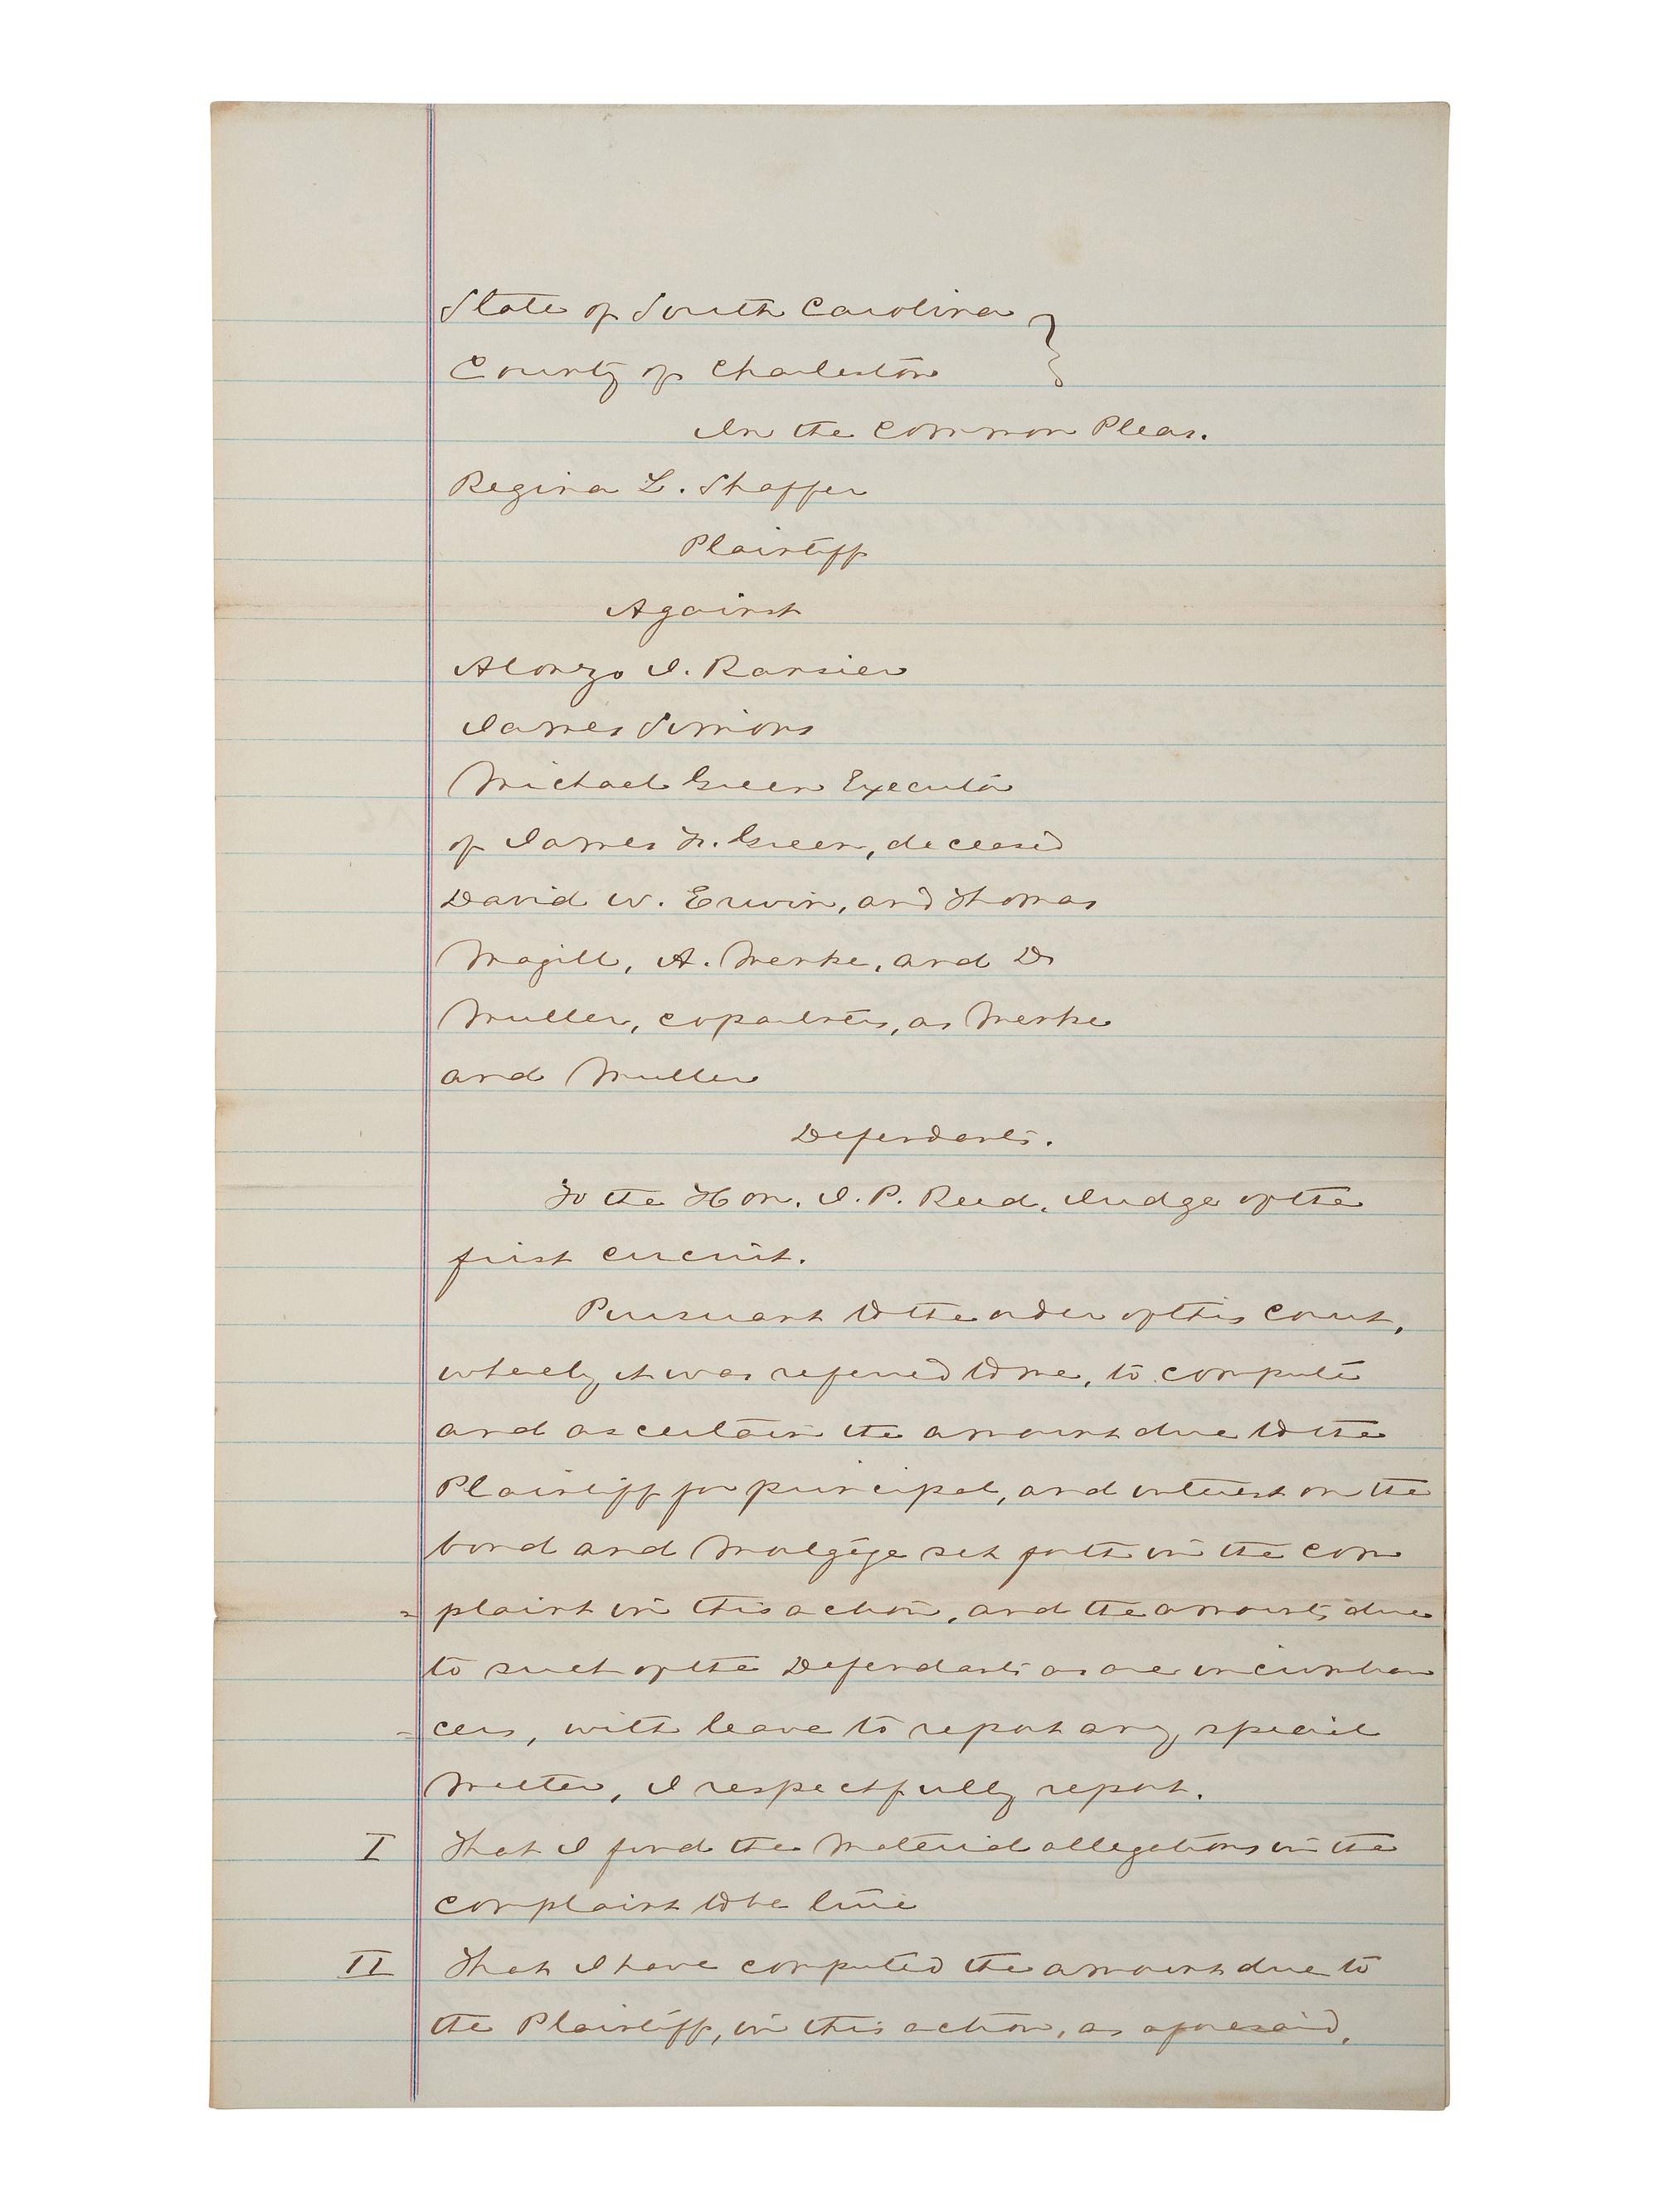 State of South Carolina }
County of Charleston }
In the Common Pleas.
Regina L. Shaffer
Plaintiff
Against
Alonzo J. Ransier
James Simons
Michael Green Executor
of James F. Green, deceased
David W. Erwin, and Thomas
Magill, A. Menke, and D
Muller, copartners, as Menke
and Muller
Defendants.
To the Hon. J. P. Reed, Judge of the
first circuit.
Pursuant to the order of this court,
whereby it was referred to me, to compute
and ascertain the amount due to the
Plaintiff for principal, and interest on the
bond and Mortgage set forth in the com
=plaint in this action, and the amounts due
to such of the Defendants as are incumbran
=cers, with leave to report any special
Matter, I respectfully report.
I That I find the Material allegations in the
complaint to be true
II That I have computed the amount due to
the Plaintiff, in this action, as aforesaid,